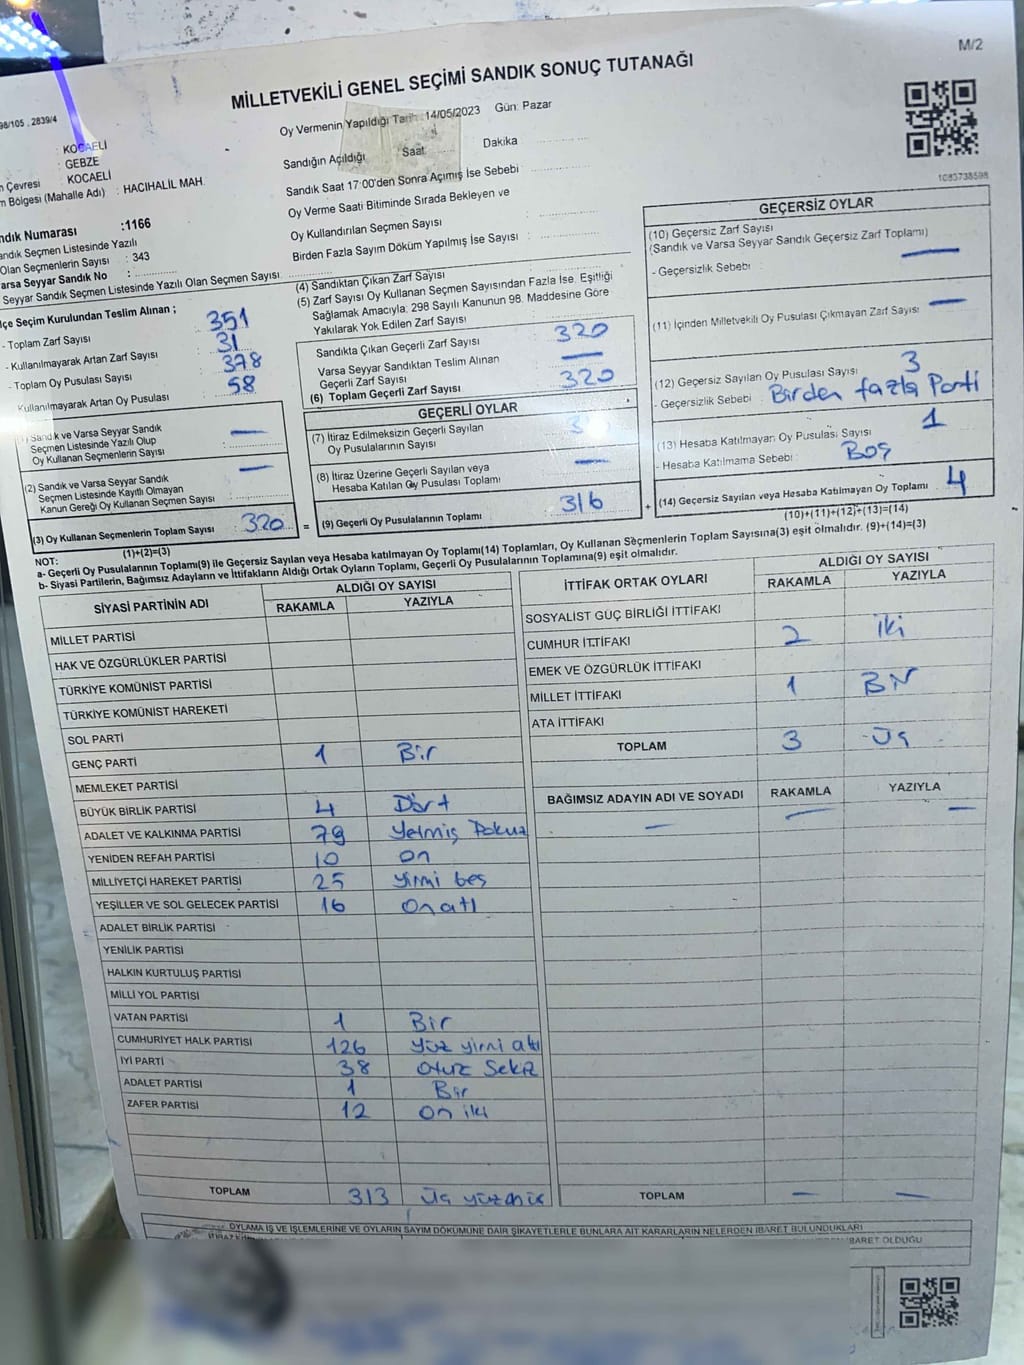 M/2
MİLLETVEKİLİ GENEL SEÇİMİ SANDIK SONUÇ TUTANAĞI
98/105 , 2839/4
: KOCAELİ
: GEBZE
n Çevresi : KOCAELİ
m Bölgesi (Mahalle Adı) : HACIHALİL MAH.
ndık Numarası :1166
andık Seçmen Listesinde Yazılı
Olan Seçmenlerin Sayısı : 343
arsa Seyyar Sandık No :
Seyyar Sandık Seçmen Listesinde Yazılı Olan Seçmen Sayısı
Oy Vermenin Yapıldığı Tarih : 14/05/2023 Gün: Pazar
Sandığın Açıldığı Saat Dakika
Sandık Saat 17:00'den Sonra Açımış İse Sebebi
Oy Verme Saati Bitiminde Sırada Bekleyen ve
Oy Kullandırılan Seçmen Sayısı :
Birden Fazla Sayım Döküm Yapılmış İse Sayısı :
1083738598
lçe Seçim Kurulundan Teslim Alınan ;
- Toplam Zarf Sayısı : 351
- Kullanılmayarak Artan Zarf Sayısı : 31
- Toplam Oy Pusulası Sayısı : 378
Kullanılmayarak Artan Oy Pusulası : 58
(1) Sandık ve Varsa Seyyar Sandık
Seçmen Listesinde Yazılı Olup
Oy Kullanan Seçmenlerin Sayısı : —
(2) Sandık ve Varsa Seyyar Sandık
Seçmen Listesinde Kayıtlı Olmayan
Kanun Gereği Oy Kullanan Seçmen Sayısı : —
(3) Oy Kullanan Seçmenlerin Toplam Sayısı : 320
(1)+(2)=(3)
(4) Sandıktan Çıkan Zarf Sayısı
(5) Zarf Sayısı Oy Kullanan Seçmen Sayısından Fazla İse, Eşitliği
Sağlamak Amacıyla; 298 Sayılı Kanunun 98. Maddesine Göre
Yakılarak Yok Edilen Zarf Sayısı
Sandıkta Çıkan Geçerli Zarf Sayısı : 320
Varsa Seyyar Sandıktan Teslim Alınan
Geçerli Zarf Sayısı : —
(6) Toplam Geçerli Zarf Sayısı : 320
GEÇERLİ OYLAR
(7) İtiraz Edilmeksizin Geçerli Sayılan
Oy Pusulalarının Sayısı :
(8) İtiraz Üzerine Geçerli Sayılan veya
Hesaba Katılan Oy Pusulası Toplamı : —
= (9) Geçerli Oy Pusulalarının Toplamı : 316 +
GEÇERSİZ OYLAR
(10) Geçersiz Zarf Sayısı
(Sandık ve Varsa Seyyar Sandık Geçersiz Zarf Toplamı) —
- Geçersizlik Sebebi :
(11) İçinden Milletvekili Oy Pusulası Çıkmayan Zarf Sayısı : —
(12) Geçersiz Sayılan Oy Pusulası Sayısı : 3
- Geçersizlik Sebebi : Birden fazla Parti
(13) Hesaba Katılmayan Oy Pusulası Sayısı : 1
- Hesaba Katılmama Sebebi : Boş
(14) Geçersiz Sayılan veya Hesaba Katılmayan Oy Toplamı : 4
(10)+(11)+(12)+(13)=(14)
NOT:
a- Geçerli Oy Pusulalarının Toplamı(9) ile Geçersiz Sayılan veya Hesaba katılmayan Oy Toplamı(14) Toplamları, Oy Kullanan Seçmenlerin Toplam Sayısına(3) eşit olmalıdır. (9)+(14)=(3)
b- Siyasi Partilerin, Bağımsız Adayların ve İttifakların Aldığı Ortak Oyların Toplamı, Geçerli Oy Pusulalarının Toplamına(9) eşit olmalıdır.
SİYASİ PARTİNİN ADI ALDIĞI OY SAYISI
RAKAMLA YAZIYLA
MİLLET PARTİSİ
HAK VE ÖZGÜRLÜKLER PARTİSİ
TÜRKİYE KOMÜNİST PARTİSİ
TÜRKİYE KOMÜNİST HAREKETİ
SOL PARTİ
GENÇ PARTİ 1 Bir
MEMLEKET PARTİSİ
BÜYÜK BİRLİK PARTİSİ 4 Dört
ADALET VE KALKINMA PARTİSİ 79 Yetmiş Dokuz
YENİDEN REFAH PARTİSİ 10 on
MİLLİYETÇİ HAREKET PARTİSİ 25 yirmi beş
YEŞİLLER VE SOL GELECEK PARTİSİ 16 on altı
ADALET BİRLİK PARTİSİ
YENİLİK PARTİSİ
HALKIN KURTULUŞ PARTİSİ
MİLLİ YOL PARTİSİ
VATAN PARTİSİ 1 Bir
CUMHURİYET HALK PARTİSİ 126 yüz yirmi altı
İYİ PARTİ 38 otuz Sekiz
ADALET PARTİSİ 1 Bir
ZAFER PARTİSİ 12 on iki
TOPLAM 313 üç yüz onüç
İTTİFAK ORTAK OYLARI ALDIĞI OY SAYISI
RAKAMLA YAZIYLA
SOSYALİST GÜÇ BİRLİĞİ İTTİFAKI
CUMHUR İTTİFAKI 2 iki
EMEK VE ÖZGÜRLÜK İTTİFAKI
MİLLET İTTİFAKI 1 Bir
ATA İTTİFAKI
TOPLAM 3 Üç
BAĞIMSIZ ADAYIN ADI VE SOYADI RAKAMLA YAZIYLA
— — —
TOPLAM — —
OYLAMA İŞ VE İŞLEMLERİNE VE OYLARIN SAYIM DÖKÜMÜNE DAİR ŞİKAYETLERLE BUNLARA AİT KARARLARIN NELERDEN İBARET BULUNDUKLARI
İBARET OLDUĞU